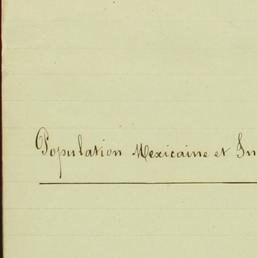 Population Mexicaine et In